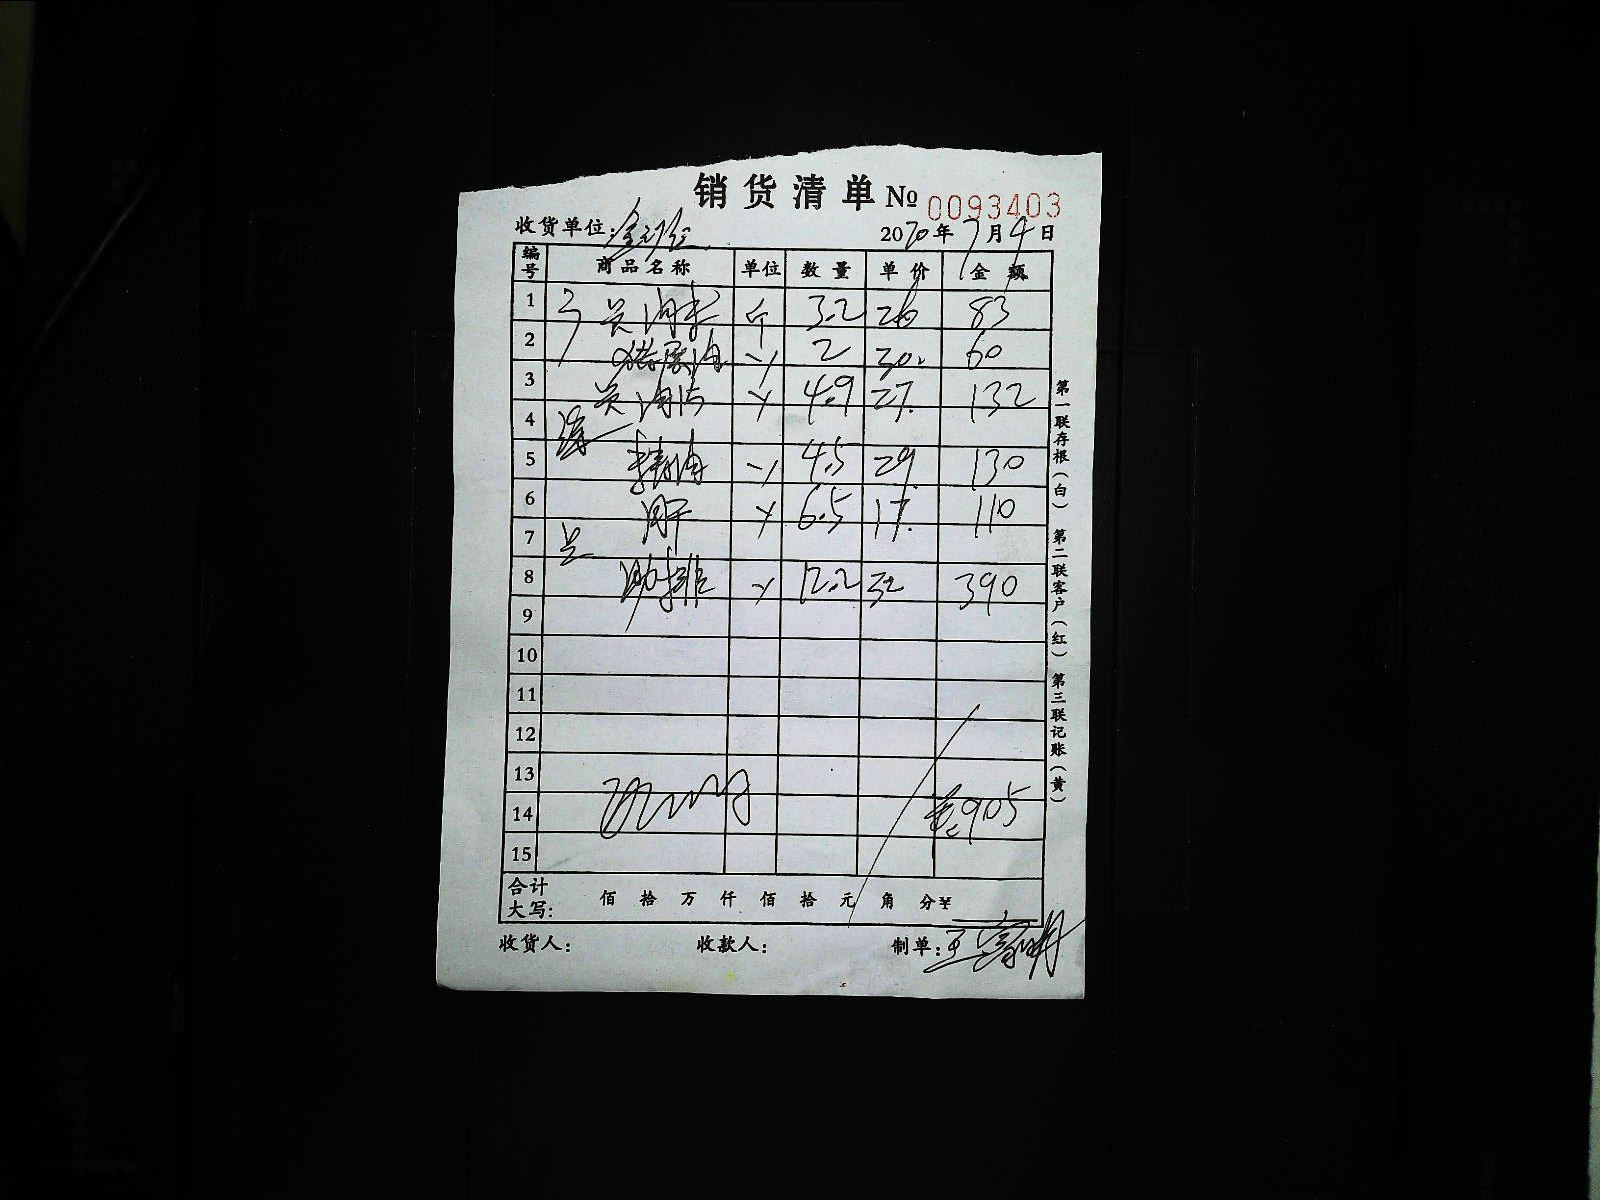 销货清单 № 0093403
收货单位:
2020年7月4日
编号 商品名称 单位 数量 单价 金额
1 3.2 26 83
2 2 30 60
3 4.9 27 132
4
5 4.5 29 130
6 6.5 17 110
7
8 肋排 12.2 32 390
9
10
11
12
13
14 905
15
合计大写: 佰 拾 万 仟 佰 拾 元 角 分 ¥
收货人: 收款人: 制单:
第一联存根(白) 第二联客户(红) 第三联记账(黄)